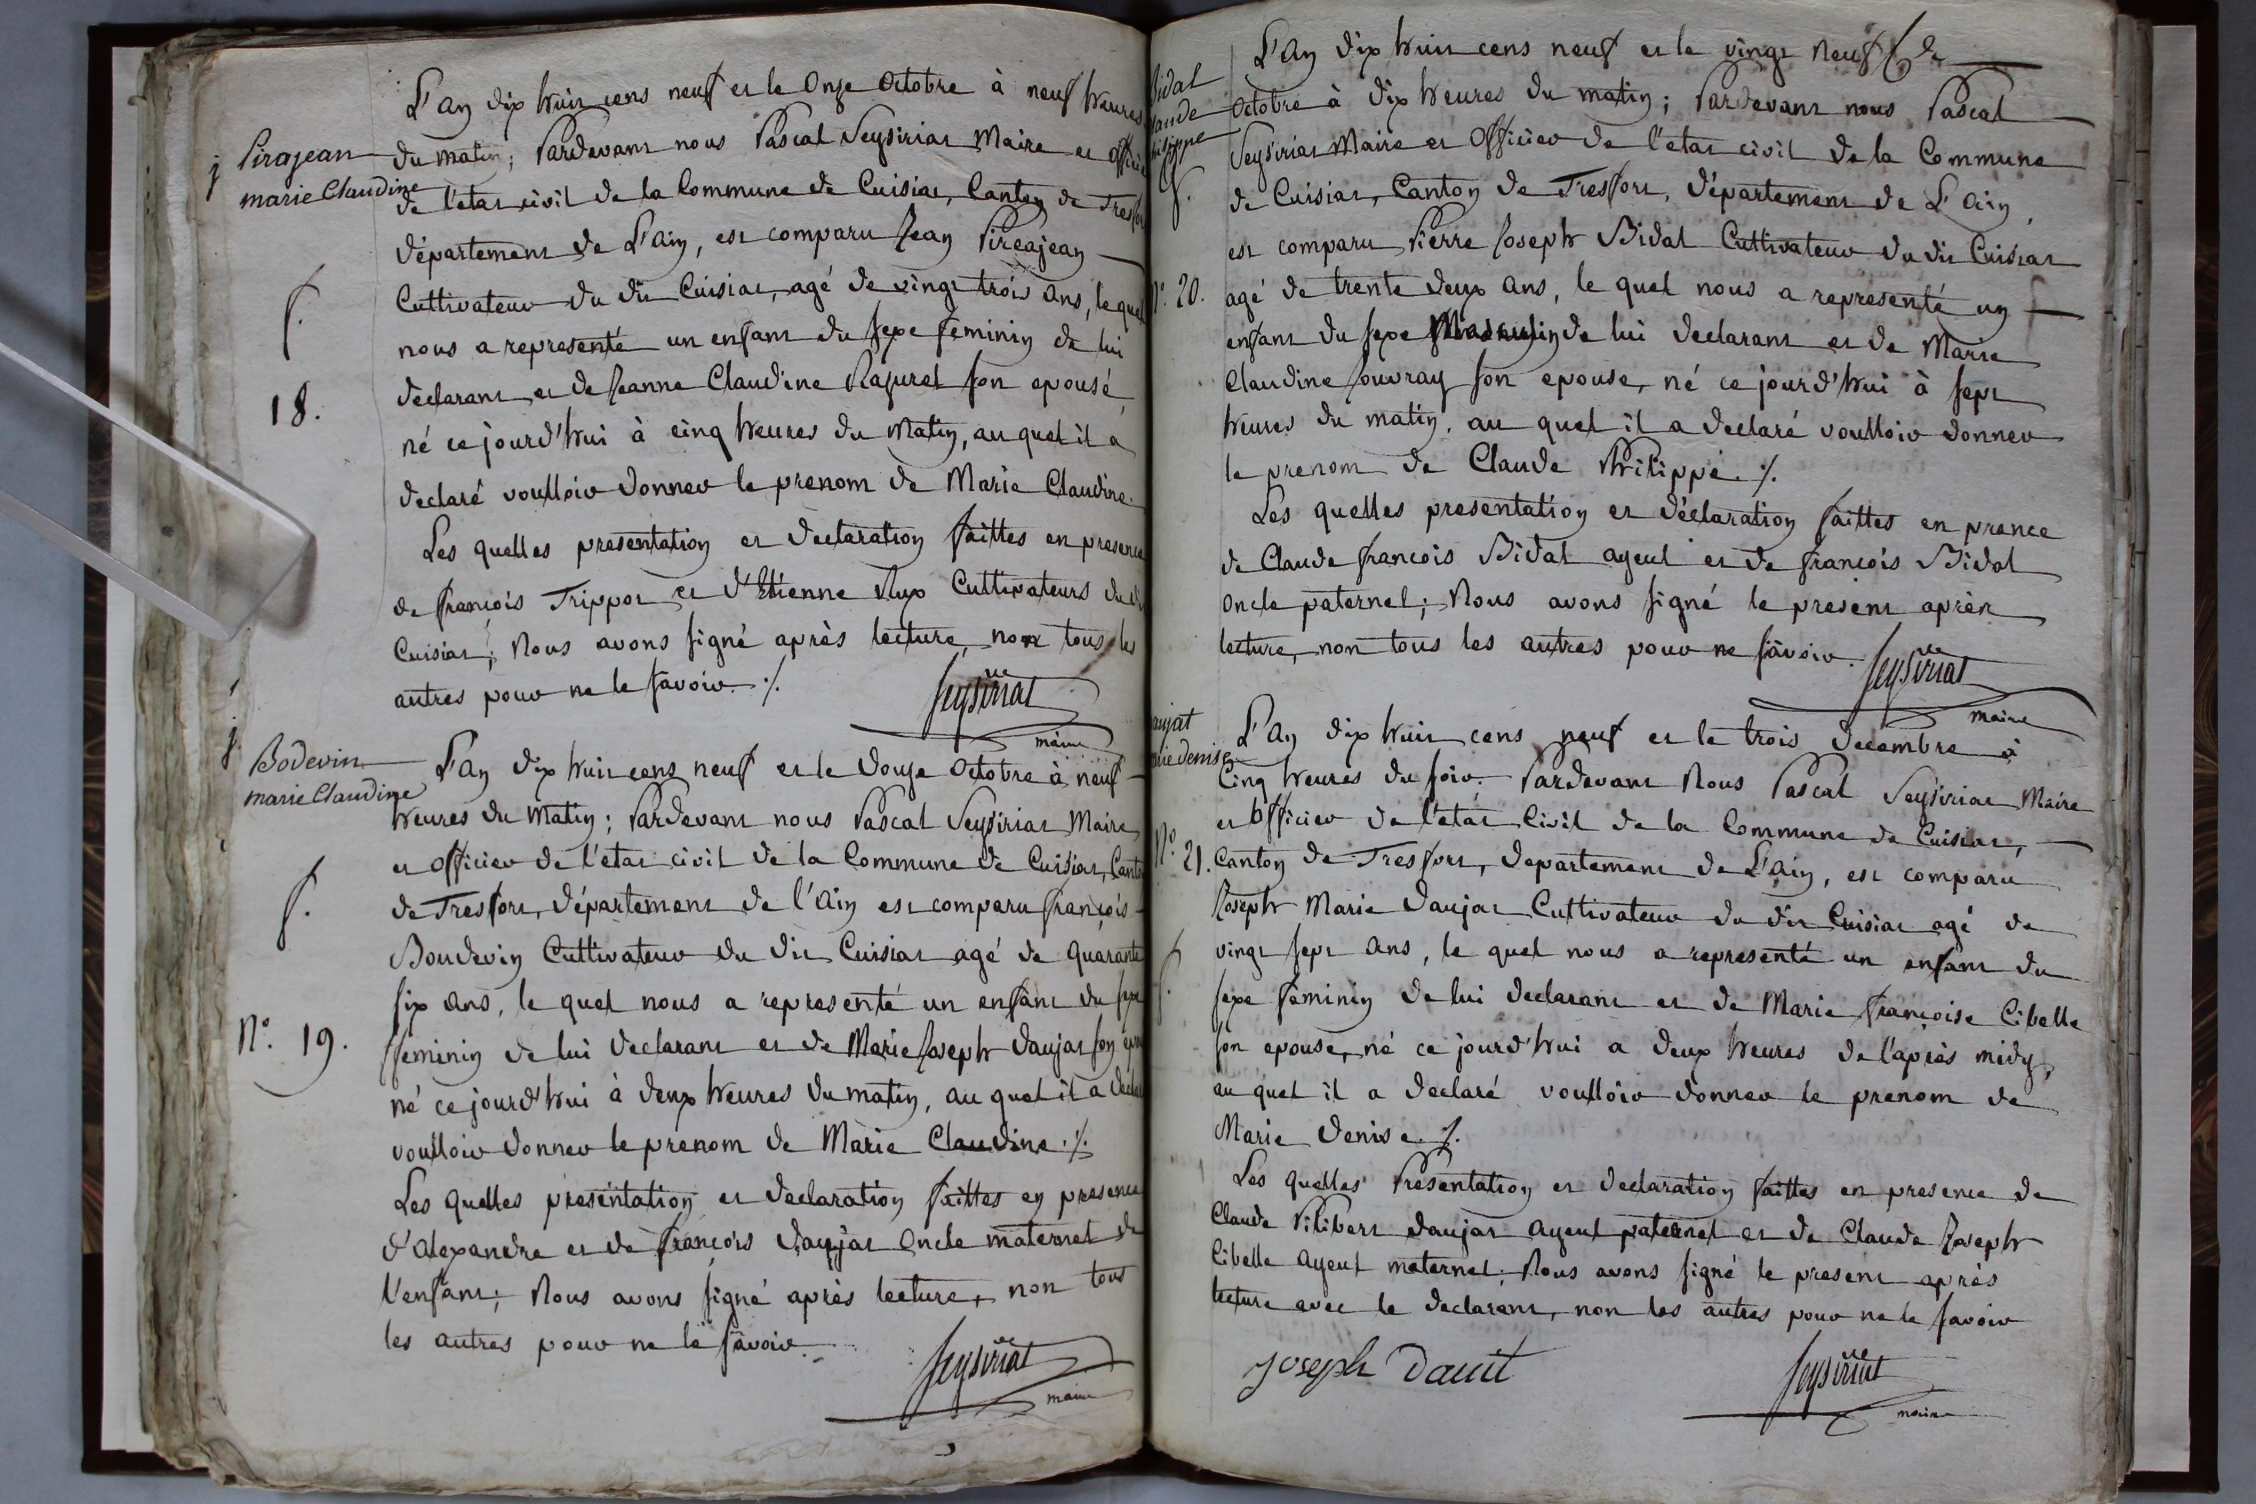 Pirajean
marie Claudine
18.
L'an dix huit cens neuf et le Onze Octobre à neuf heures
du matin; Pardevant nous Pascal Seysiriat Maire et officier
de l'etat civil de la Commune de Cuisiat, Canton de Tresfort
département de L'ain, est comparu Jean Pireajean
Cultivateur du dit Cuisiat, agé de vingt trois ans, le quel
nous a representé un enfant du sexe feminin de lui
declarant et de Jeanne Claudine Razurel son epousé,
né ce jourd'hui à cinq heures du matin, au quel il a
declaré voulloir donner le prenom de Marie Claudine.
Les quelles presentation et declaration faittes en presence
de françois Trippoz et d'Etienne Nup Cultivateurs du dit
Cuisiat; Nous avons signé après lecture, non tous les
autres pour ne le savoir ./.
Seysiriat
maire
Bodevin
marie Claudine
N.º 19.
L'an dix huit cens neuf et le douze Octobre à neuf
heures du matin; Pardevant nous Pascal Seysiriat Maire
et officier de l'etat civil de la Commune de Cuisiat, Canton
de Tresfort, département de l'ain est comparu françois
Boudevin Cultivateur du dit Cuisiat agé de quarante
six ans, le quel nous a representé un enfant du sexe
feminin de lui declarant et de Marie Joseph daujat son
né ce jourd'hui à deux heures du matin, au quel il a declaré
voulloir donner le prenom de Marie Claudine ./.
Les quelles presentation et declaration faittes en presence
d'alexandre et de françois daujat Oncle maternel de
l'enfant; Nous avons signé après lecture, non tous
les autres pour ne le savoir.
Seysiriat
maire
Bidal
Claude
philippe
N.º 20.
L'an dix huit cens neuf et le vingt neuf de
Octobre à dix heures du matin; Pardevant nous Pascal
Seysiriat Maire et Officier de l'etat civil de la Commune
de Cuisiat, Canton de Tresfort, département de L'ain,
est comparu Pierre Joseph Bidal Cultivateur du dit Cuisiat
agé de trente deux ans, le quel nous a representé un
enfant du sexe Masculin de lui declarant et de Marie
Claudine Jouvray son epouse, né ce jourd'hui à sept
heures du matin, au quel il a declaré voulloir donner
le prenom de Claude Philippe ./.
Les quelles presentation et déclaration faittes en prence
de Claude françois Bidal ayeul et de françois Bidal
Oncle paternel; Nous avons signé le present après
lecture, non tous les autres pour ne savoir.
Seysiriat
maire
aujat
marie denise
N.º 21.
L'an dix huit cens neuf et le trois decembre à
Cinq heures du soir. Pardevant Nous Pascal Seysiriat Maire
et Officier de l'etat Civil de la Commune de Cuisiat,
Canton de Tresfort, departement de L'ain, est comparu
Joseph Marie daujat Cultivateur du dit Cuisiat agé de
vingt sept ans, le quel nous a representé un enfant du
sexe feminin de lui declarant et de Marie françoise Cibelle
son epouse, né ce jourd'hui a deux heures de l'après midy,
au quel il a declaré voulloir donner le prenom de
Marie denise ./.
Les quelles Presentation et declaration faittes en presence de
Claude Filibert daujat ayeul paternel et de Claude Joseph
Cibelle ayeul maternel; Nous avons signé le present après
lecture avec le declarant, non les autres pour ne le savoir
Joseph Daujt
Seysiriat
maire